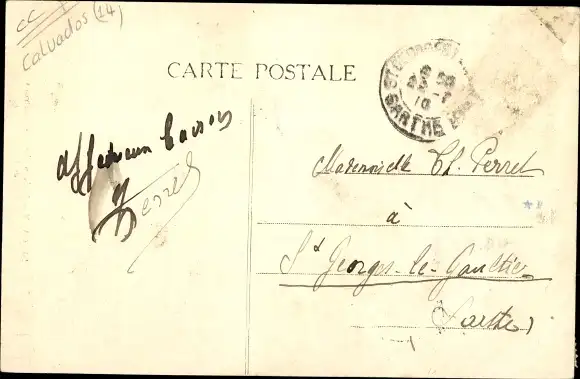 CC
Calvados (14)
CARTE POSTALE
SARTHE
Affectueux baisers
Perret
Mademoiselle Ch. Perret
à
St Georges-le-Gaultier
Sarthe)